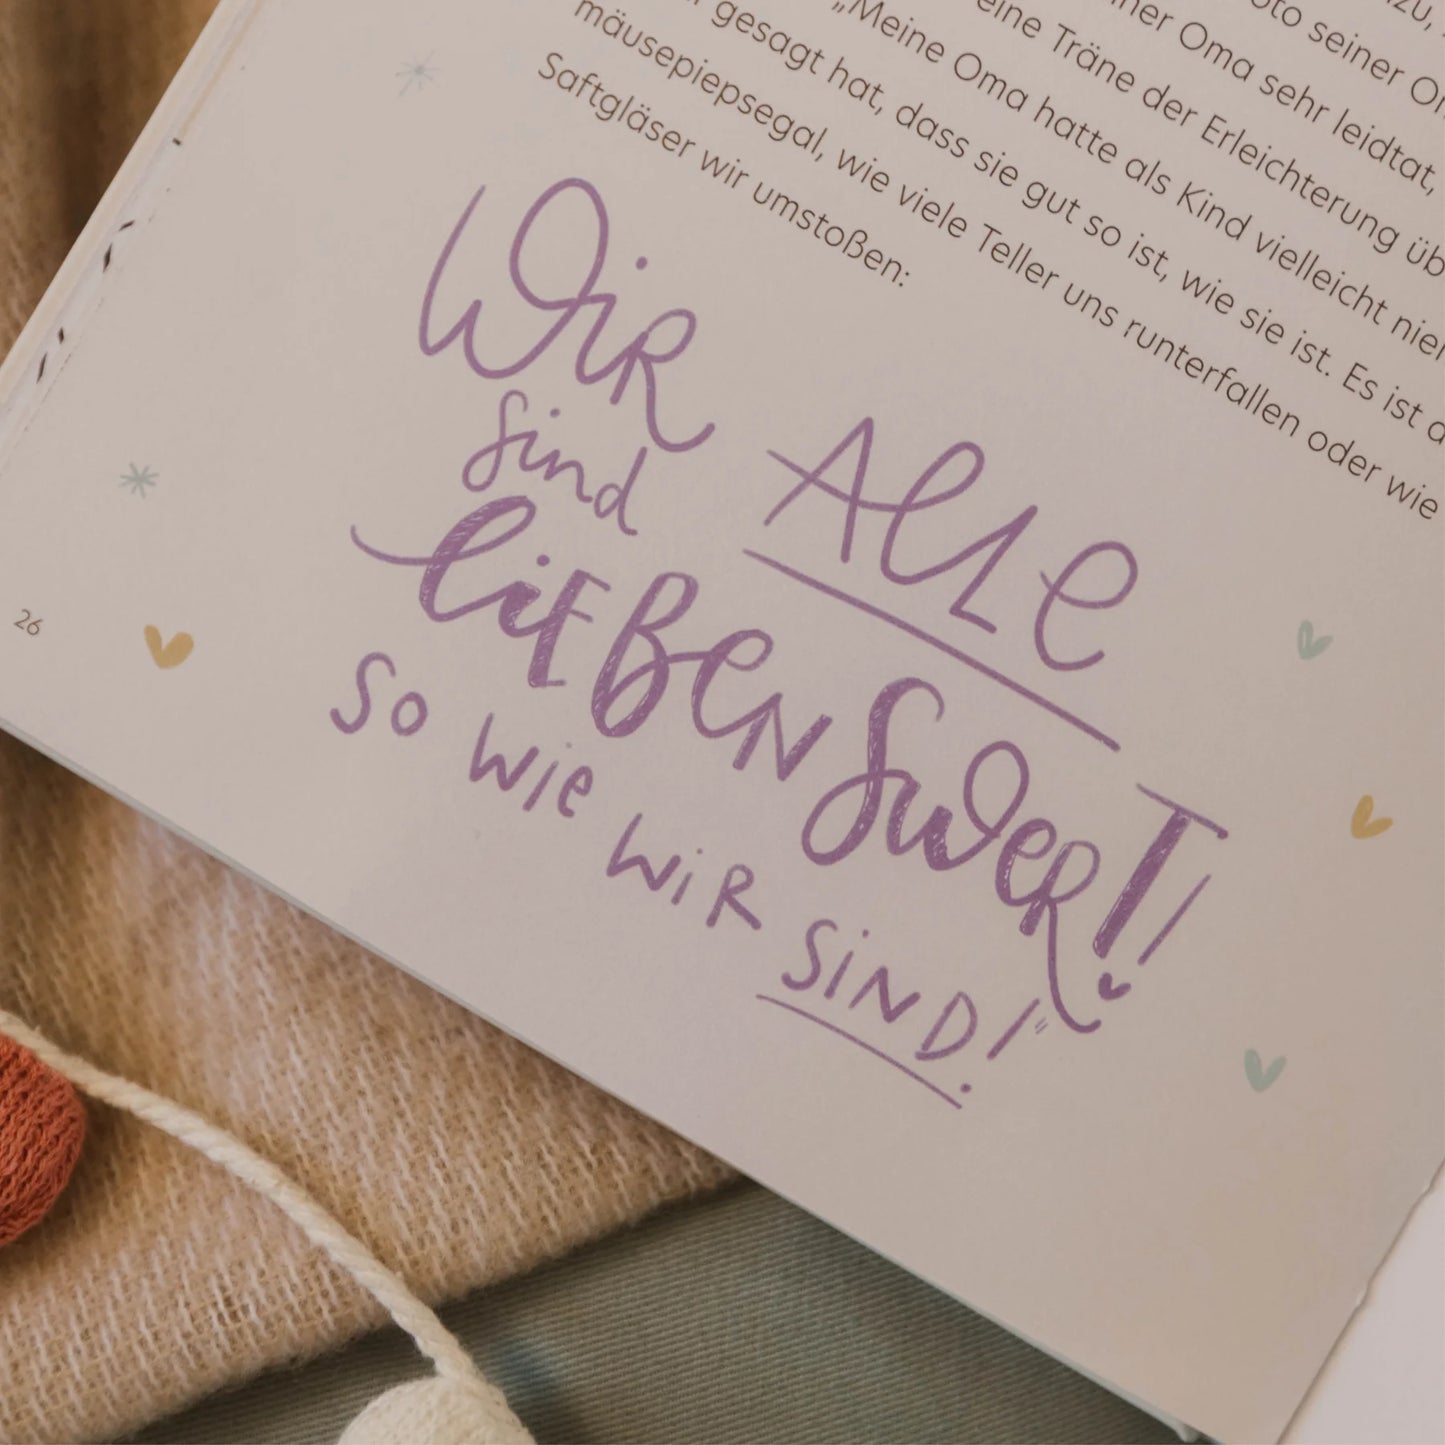 zu,
oto seiner O
iner Oma sehr leidtat,
eine Träne der Erleichterung üb
„Meine Oma hatte als Kind vielleicht nie
gesagt hat, dass sie gut so ist, wie sie ist. Es ist
mäusepiepsegal, wie viele Teller uns runterfallen oder wie
Saftgläser wir umstoßen:
Wir
sind ALLE
LIEBENSWERT!
SO WIE WIR SIND!“
26